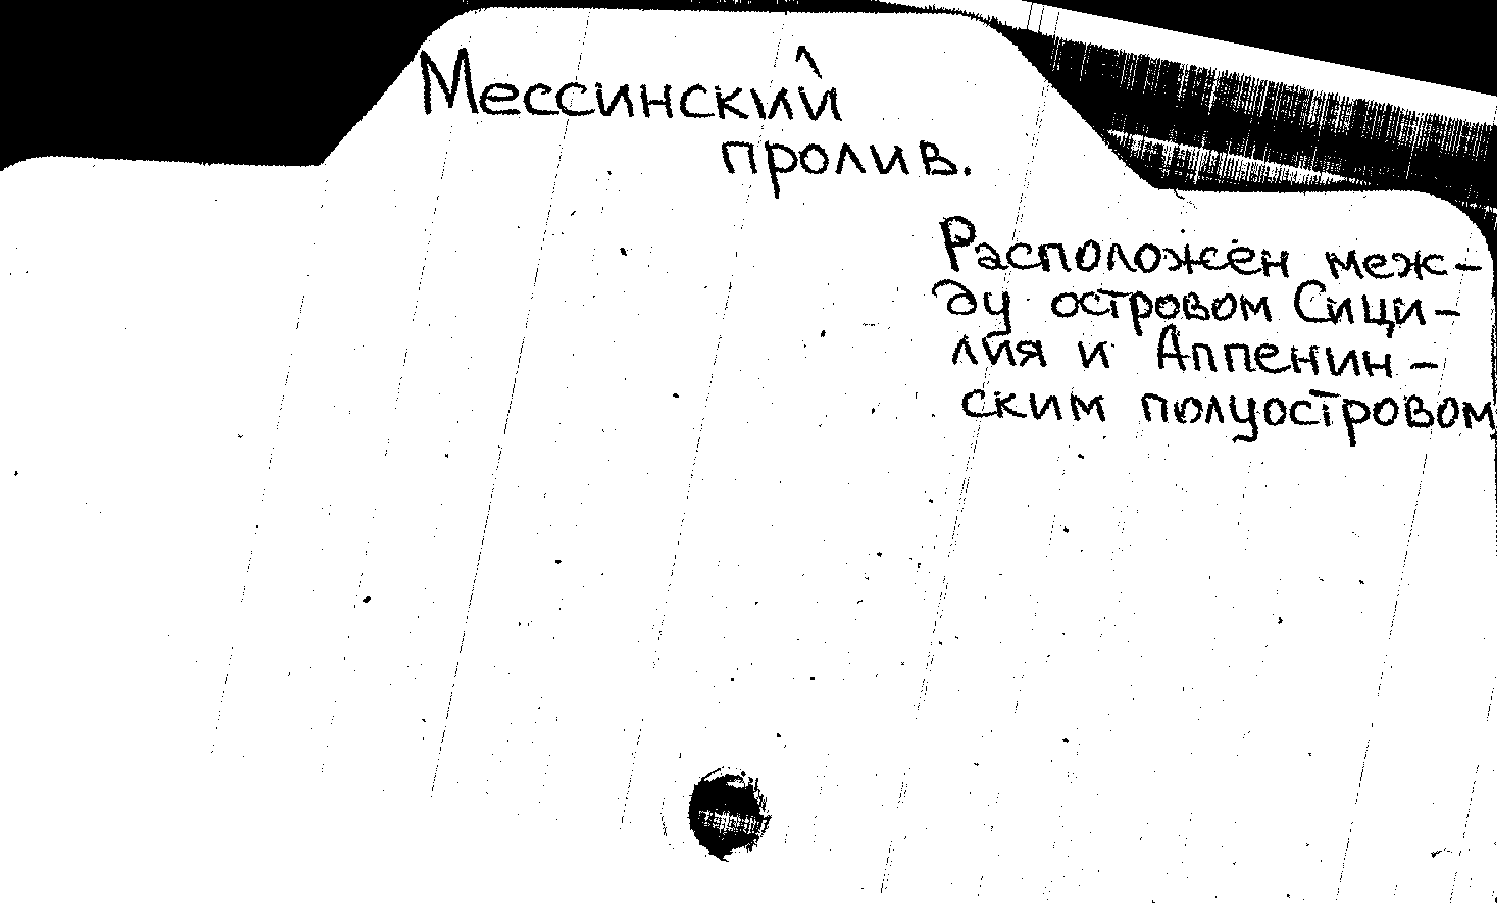 Мессинский
пролив.
Расположен меж-
ду островом Сици-
лия и Аппенин-
ским полуостровом